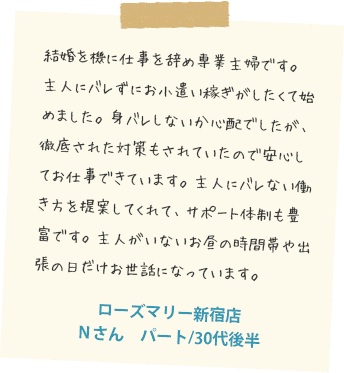 結婚を機に仕事を辞め専業主婦です。
主人にバレずにお小遣い稼ぎがしたくて始
めました。身バレしないか心配でしたが、
徹底された対策もされていたので安心し
てお仕事できています。主人にバレない働
き方を提案してくれて、サポート体制も豊
富です。主人がいないお昼の時間帯や出
張の日だけお世話になっています。
ローズマリー新宿店
Nさん　パート/30代後半